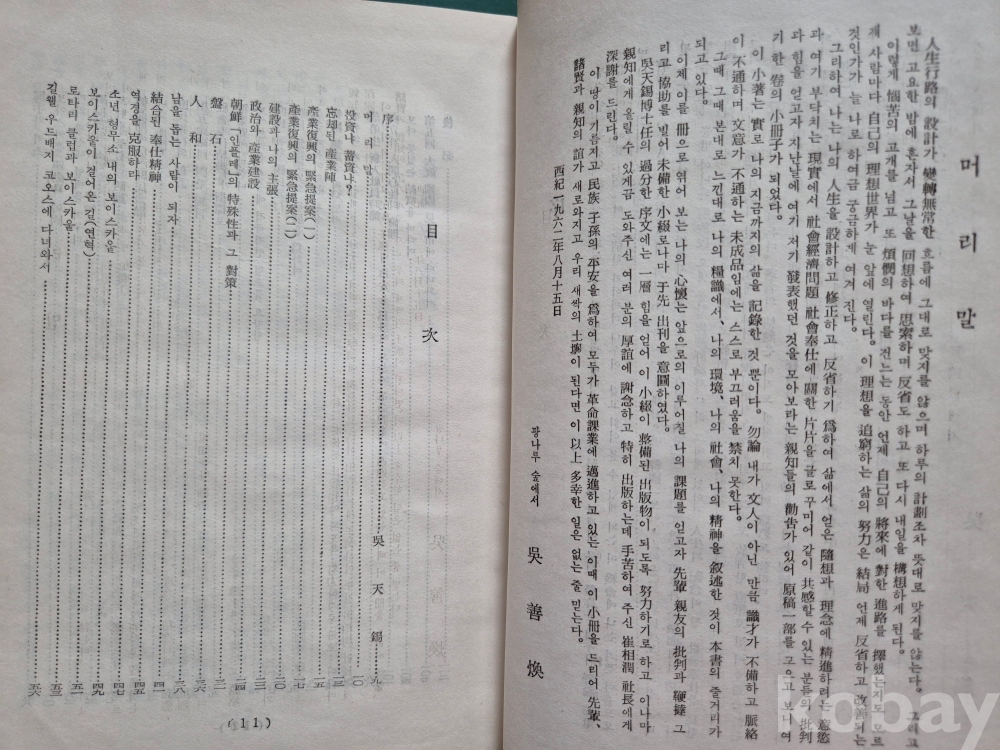 머리말
人生行路의 設計가 變轉無常한 흐름에 그대로 맞지를 않으며 하루의 計劃조차 뜻대로 맞지를 않는다. 그리고
보면 고요한 밤에 혼자서 그날을 回想하여 思索하며 反省도 하고 또 다시 내일을 構想하게 된다.
이렇게 惱苦의 고개를 넘고 또 煩憫의 바다를 건느는 동안 언제 自己의 將來에 對한 進路를 擇했는지도 모르
께 사람마다 自己의 理想世界가 눈 앞에 열린다. 이 理想을 追窮하는 삶의 努力은 結局 언제 反省하고 改善되는
것인가가 늘 나로 하여금 궁금하게 여겨 진다.
그리하여 나는 나의 人生을 設計하고 修正하고 反省하기 爲하여 삶에서 얻은 隨想과 理念에 精進하려는 意慾
과 여기 부닥치는 現實에서 社會經濟問題 社會奉仕에 關한 片片을 글로 꾸미어 같이 共感할 수 있는 분들의 批判
과 힘을 얻고자 지난날에 여기 저기 發表했던 것을 모아보라는 親知들의 勸告가 있어 原稿一部를 그으고 보니 여
기 한 卷의 小冊子가 되었다.
이 小著는 實로 나의 지금까지의 삶을 記錄한 것 뿐이다. 勿論 내가 文人이 아닌 만큼 識才가 不備하고 脈絡
이 不通하며 文意가 不通하는 未成品임에는 스스로 부끄러움을 禁치 못한다.
그때 그때 본대로 느낀대로 나의 糧識에서、나의 環境、나의 社會、나의 精神을 叙述한 것이 本書의 줄거리가
되고 있다.
이제 이를 冊으로 엮어 보는 나의 心懷는 앞으로의 이루어질 나의 課題를 얻고자 先輩 親友의 批判과 鞭撻 그
리고 協助를 빌어 未備한 小綴로나마 于先 出刊을 意圖하였다.
吳天錫博士任의 過分한 序文에는 一層 힘을 얻어 이 小綴이 整備된 出版物이 되도록 努力하기로 하고 이나마
親知에게 올릴 수 있게끔 도와주신 여러 분의 厚誼에 謝念하고 特히 出版하는데 手苦하여 주신 崔相潤 社長에게
深謝를 드린다.
이 땅이 기름지고 民族 子孫의 平安을 爲하여 모두가 革命課業에 邁進하고 있는 이때 이 小冊을 드리어 先輩、
諸賢과 親知의 誼가 새로와지고 우리 새싹의 土壤이 된다면 이 以上 多幸한 일은 없는 줄 믿는다.
西紀一九六二年八月十五日
광나루 숲에서 吳善煥
目次
序 吳天錫 九
머리말 一〇
投資냐 蓄資냐? 一三
忘却된 産業陣 一五
産業復興의 緊急提案(一) 一七
産業復興의 緊急提案(二)
建設과 나의 主張
政治와 産業建設
朝鮮「인플레」의 特殊性과 그 對策
盤石
人和
남을 돕는 사람이 되자 三八
結合된 奉仕精神 四一
역경을 克服하라 四五
소년 형무소 내의 보이스카웉 四七
보이스카웉이 걸어온 길(연혁) 四九
로타리 클럽과 보이스카웉 五一
길웰 우드배지 코오스에 다녀와서
(11)
kobay